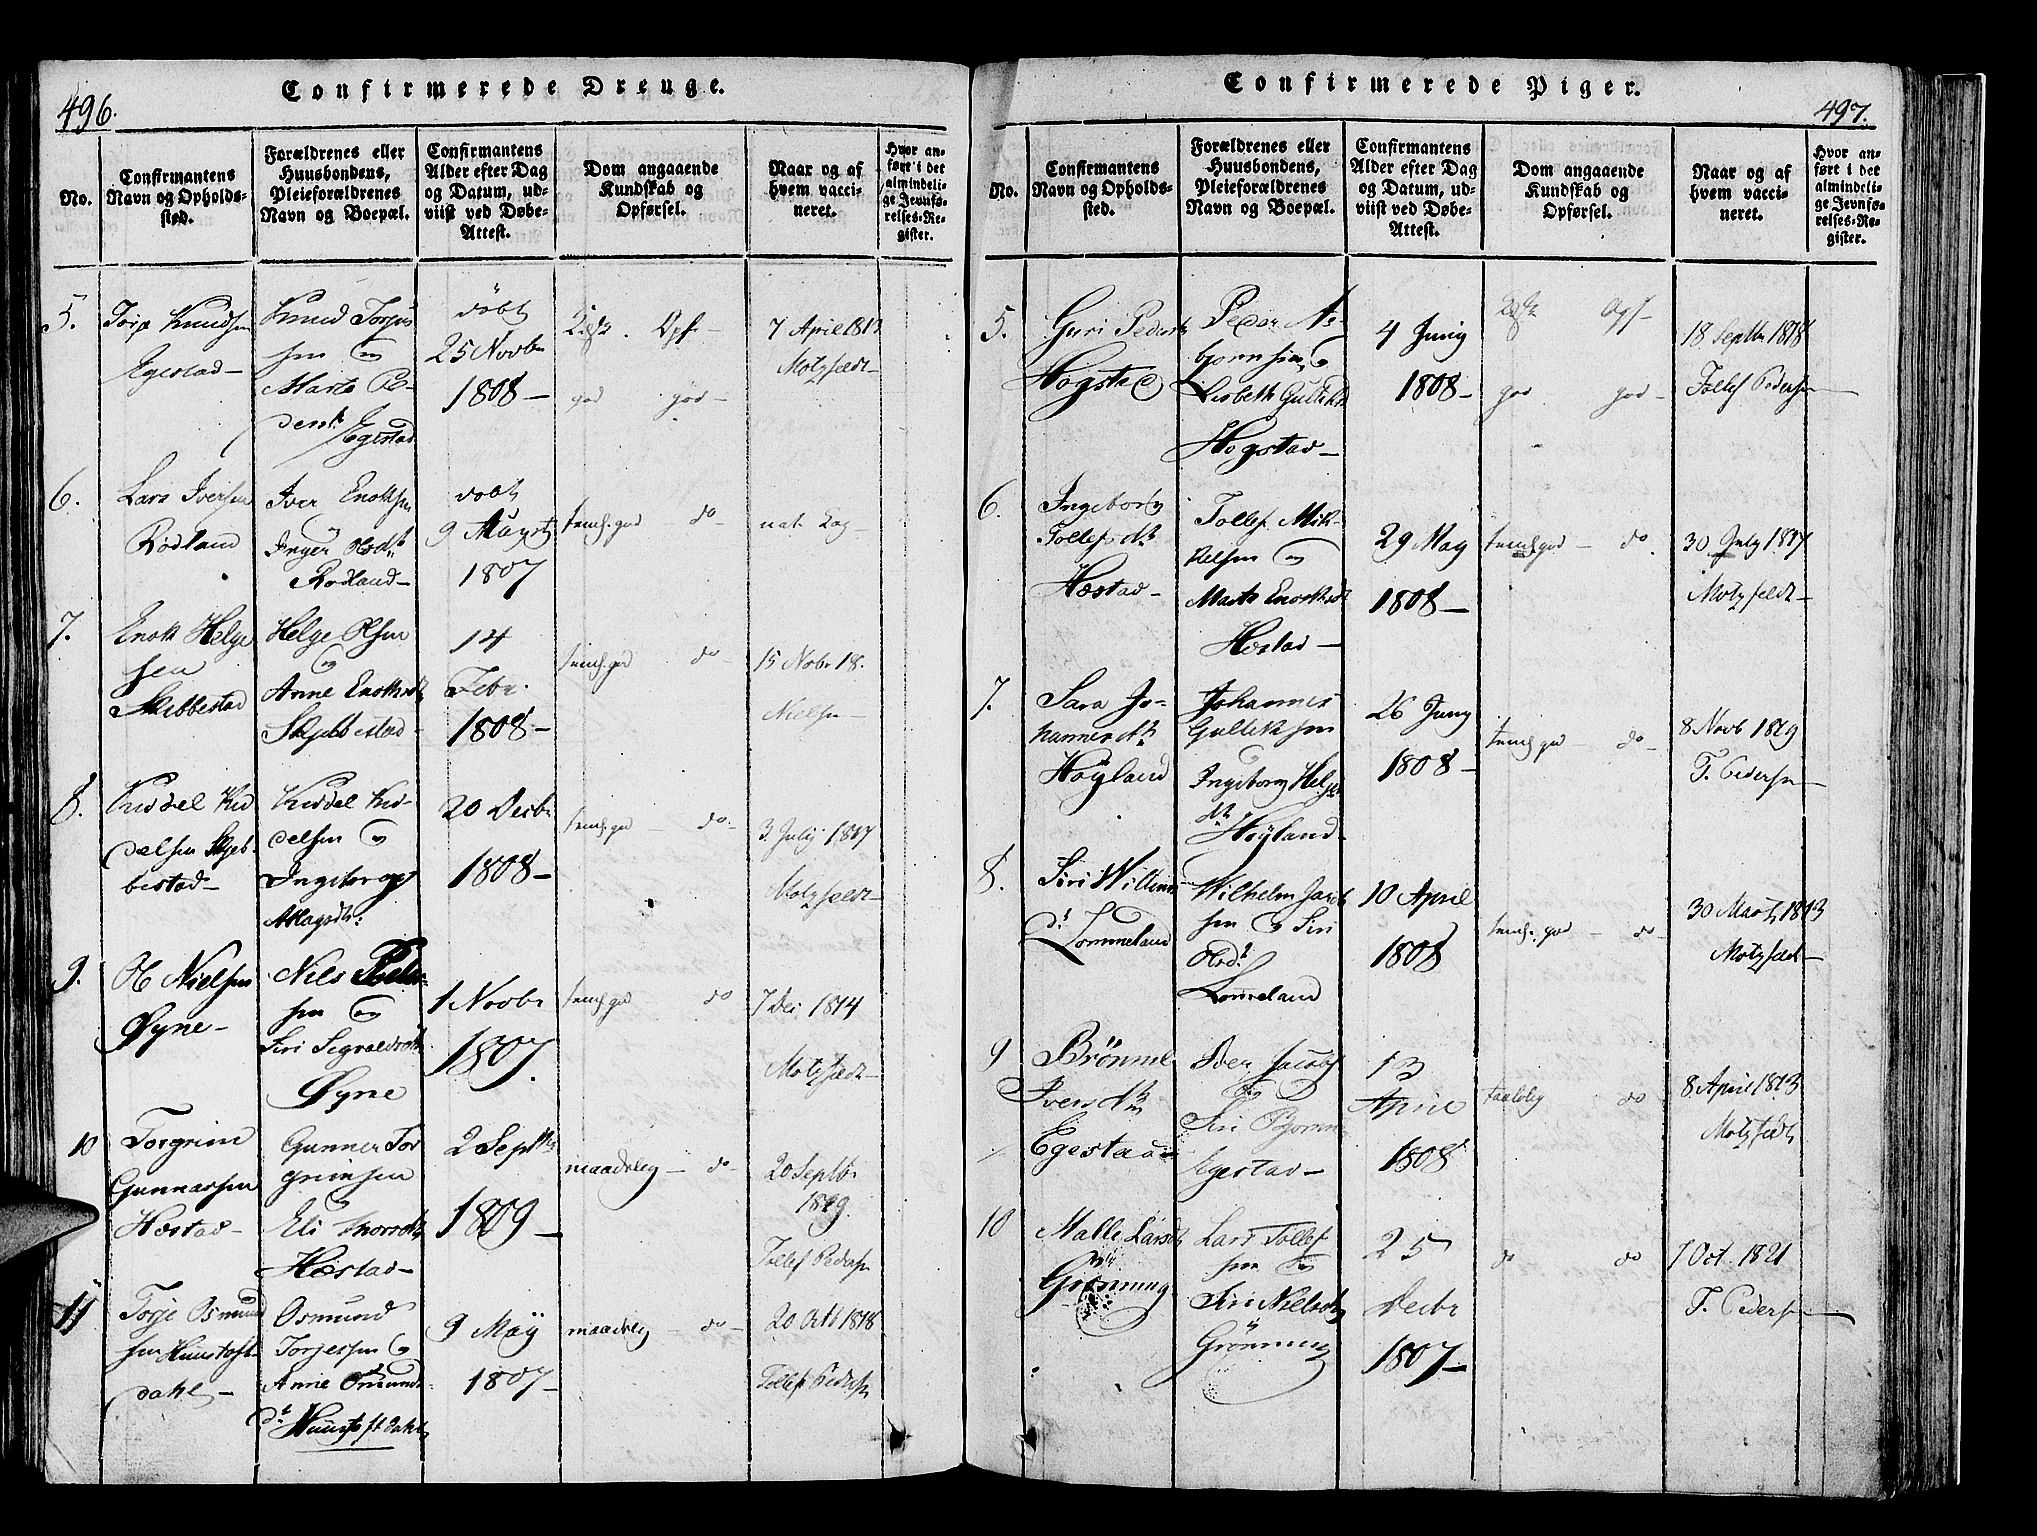 Confirmerede Drenge.
496.
No.
Confirmantens
Navn og Opholds-
sted.
Forældrenes eller
Huusbondens,
Pleieforældrenes
Navn og Boepæl.
Confirmantens
Alder efter Dag
og Datum, ud-
viist ved Døbe-
Attest.
Dom angaaende
Kundskab og
Opførsel.
Naar og af
hvem vacci-
neret.
Hvor an-
ført i det
almindeli-
ge Jevnfø-
relses-Re-
gister.
5.
Torje Knudsen
Egestad-
Knud Torjus
sen og
Marta Pe-
Egestad
døbt
25 Novbr
1808-
Opf-
god god-
7 April 1812
Motzfeldt-
6.
Lars Iversen
Rodland
Iver Enoksen
Inger
Rodland-
døbt
9 August
1807
temf. god do
nat. Kop-
7.
Enok Helge
sen
Skibbestad
Helge Olsen
og
Anne
Skjebbestad-
14
Febr.
1808-
temf. god do-
15 Nobr 18.
Nielsen-
8.
Kiddel Kid
delsen Skjeb-
bestad-
Kiddel Kid-
delsen og
Ingeborg
Aslagsdtr:
20 Decbr
1808-
temf. god do-
3 July 1817
Motzfeldt-
9.
Ole Nielsen
Øyne-
Niels Peder-
sen og
Siri
Øyne
1 Novbr
1807.
temf. god do
7 Dec 1814
Motzfeldt-
10
Torgrim
Gunnarsen
Hæstad-
Gunner Tor
grimsen
Eli
Hæstad-
2 Septbr
1809-
maadelig - do-
20 Septbr
1819.
Tollef Pedersen
11
Torje Osmund
sen
dahl-
Osmund
Torjessen og
Anne Osmunds
dtr
9 Maÿ
1807-
maadelig - do-
20 Octb 1818
Tollef Pedersen
Confirmerede Piger.
497.
No.
Confirmantens
Navn og Opholds-
sted.
Forældrenes eller
Huusbondens,
Pleieforældrenes
Navn og Boepæl.
Confirmantens
Alder efter Dag
og Datum, ud-
viist ved Døbe-
Attest.
Dom angaaende
Kundskab og
Opførsel.
Naar og af
hvem vacci-
neret.
Hvor an-
ført i det
almindeli-
ge Jevnfø-
relses-Re-
gister.
5.
Guri
Hogstad
Peder As-
bjornsen og
Lisbeth
Hogstad-
4 Juny
1808-
Opf-
god god-
18 Septbr 1818
Tollef Pedersen
6.
Ingeborg
Tollefsdtr
Hæstad-
Tollef Mik-
kelsen og
Marta
Hæstad-
29 May
1808-
temf. god - do.
30 July 1817
Motzfeldt-
7.
Sara Jo-
hannesdtr
Høyland
Johannes
Gulleksen
Ingeborg Helge
dtr
Høyland-
26 Juny
1808-
temf. god - do-
8 Novb 1819
T. Pedersen
8.
Siri
Lommeland
Wilhelm
sen og Siri
Lommeland
10 April
1808
temf. god - do-
30 Marts 1813
Motzfeldt-
9
Brönnel
Iversdtr
Egestad
Iver
og
Siri
Egestad-
13
April
1808
taalelig do
8 April 1813
Motzfeldt
10
Malle Larsdtr
Grönning
Lars Tollef
sen og
Siri Nielsdtr
Grönning
25
Decbr
1807-
do do
7 Oct. 1821
T. Pedersen